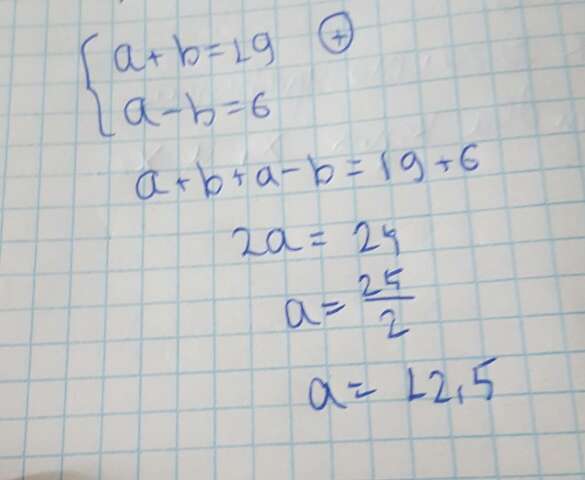 a+b=19 (+)
a-b=6
a+b+a-b=19+6
2a=25
a=25/2
a=12,5